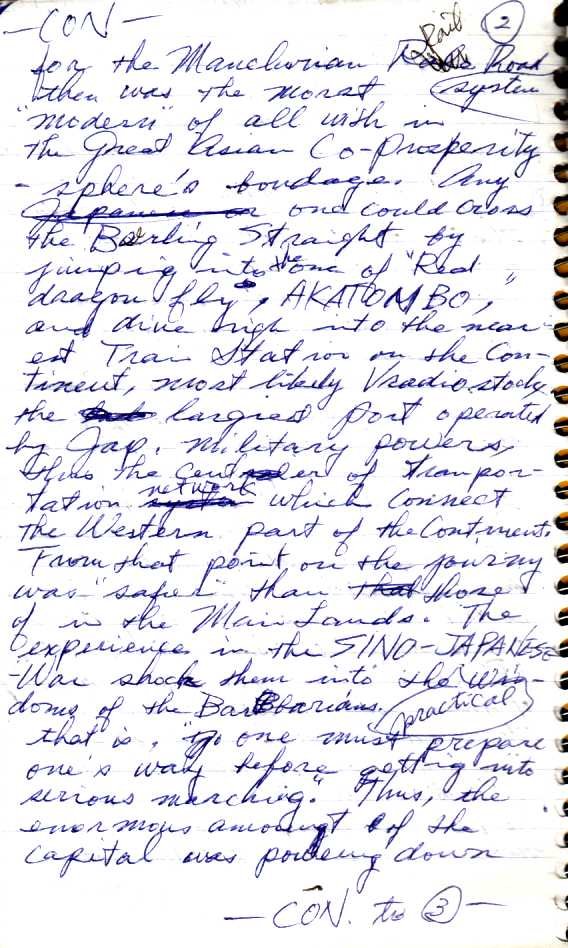 -CON- 2
for the Manchurian Rail Road
then was the morst system
"modern" of all wish in
the Great Asian Co-prosperity
- sphere's bondage. Any
Japanese or one could cross
the Barling Straight by
jumpig into the one of "Red
dragon fly", AKATOMBO,"
and drive righ into the near-
est Train Station on the Con-
tinent, most likely Vradiostock,
the largiest port operated
by Jap. military powers,
thus the center of transpor-
tation network system which connect
the Western part of the Continent.
From that point, on the journy
was "safer" than that those
of in the Main Lands. The
experiences in the SINO-JAPANESE
-War shock them into the wis-
doms of the Barbbarians. practical
that is, "go one must prepare
one's way before gettig into
serious marchig." Thus, the
enormous amoungt of the
capital was poureing down
-CON. to 3-